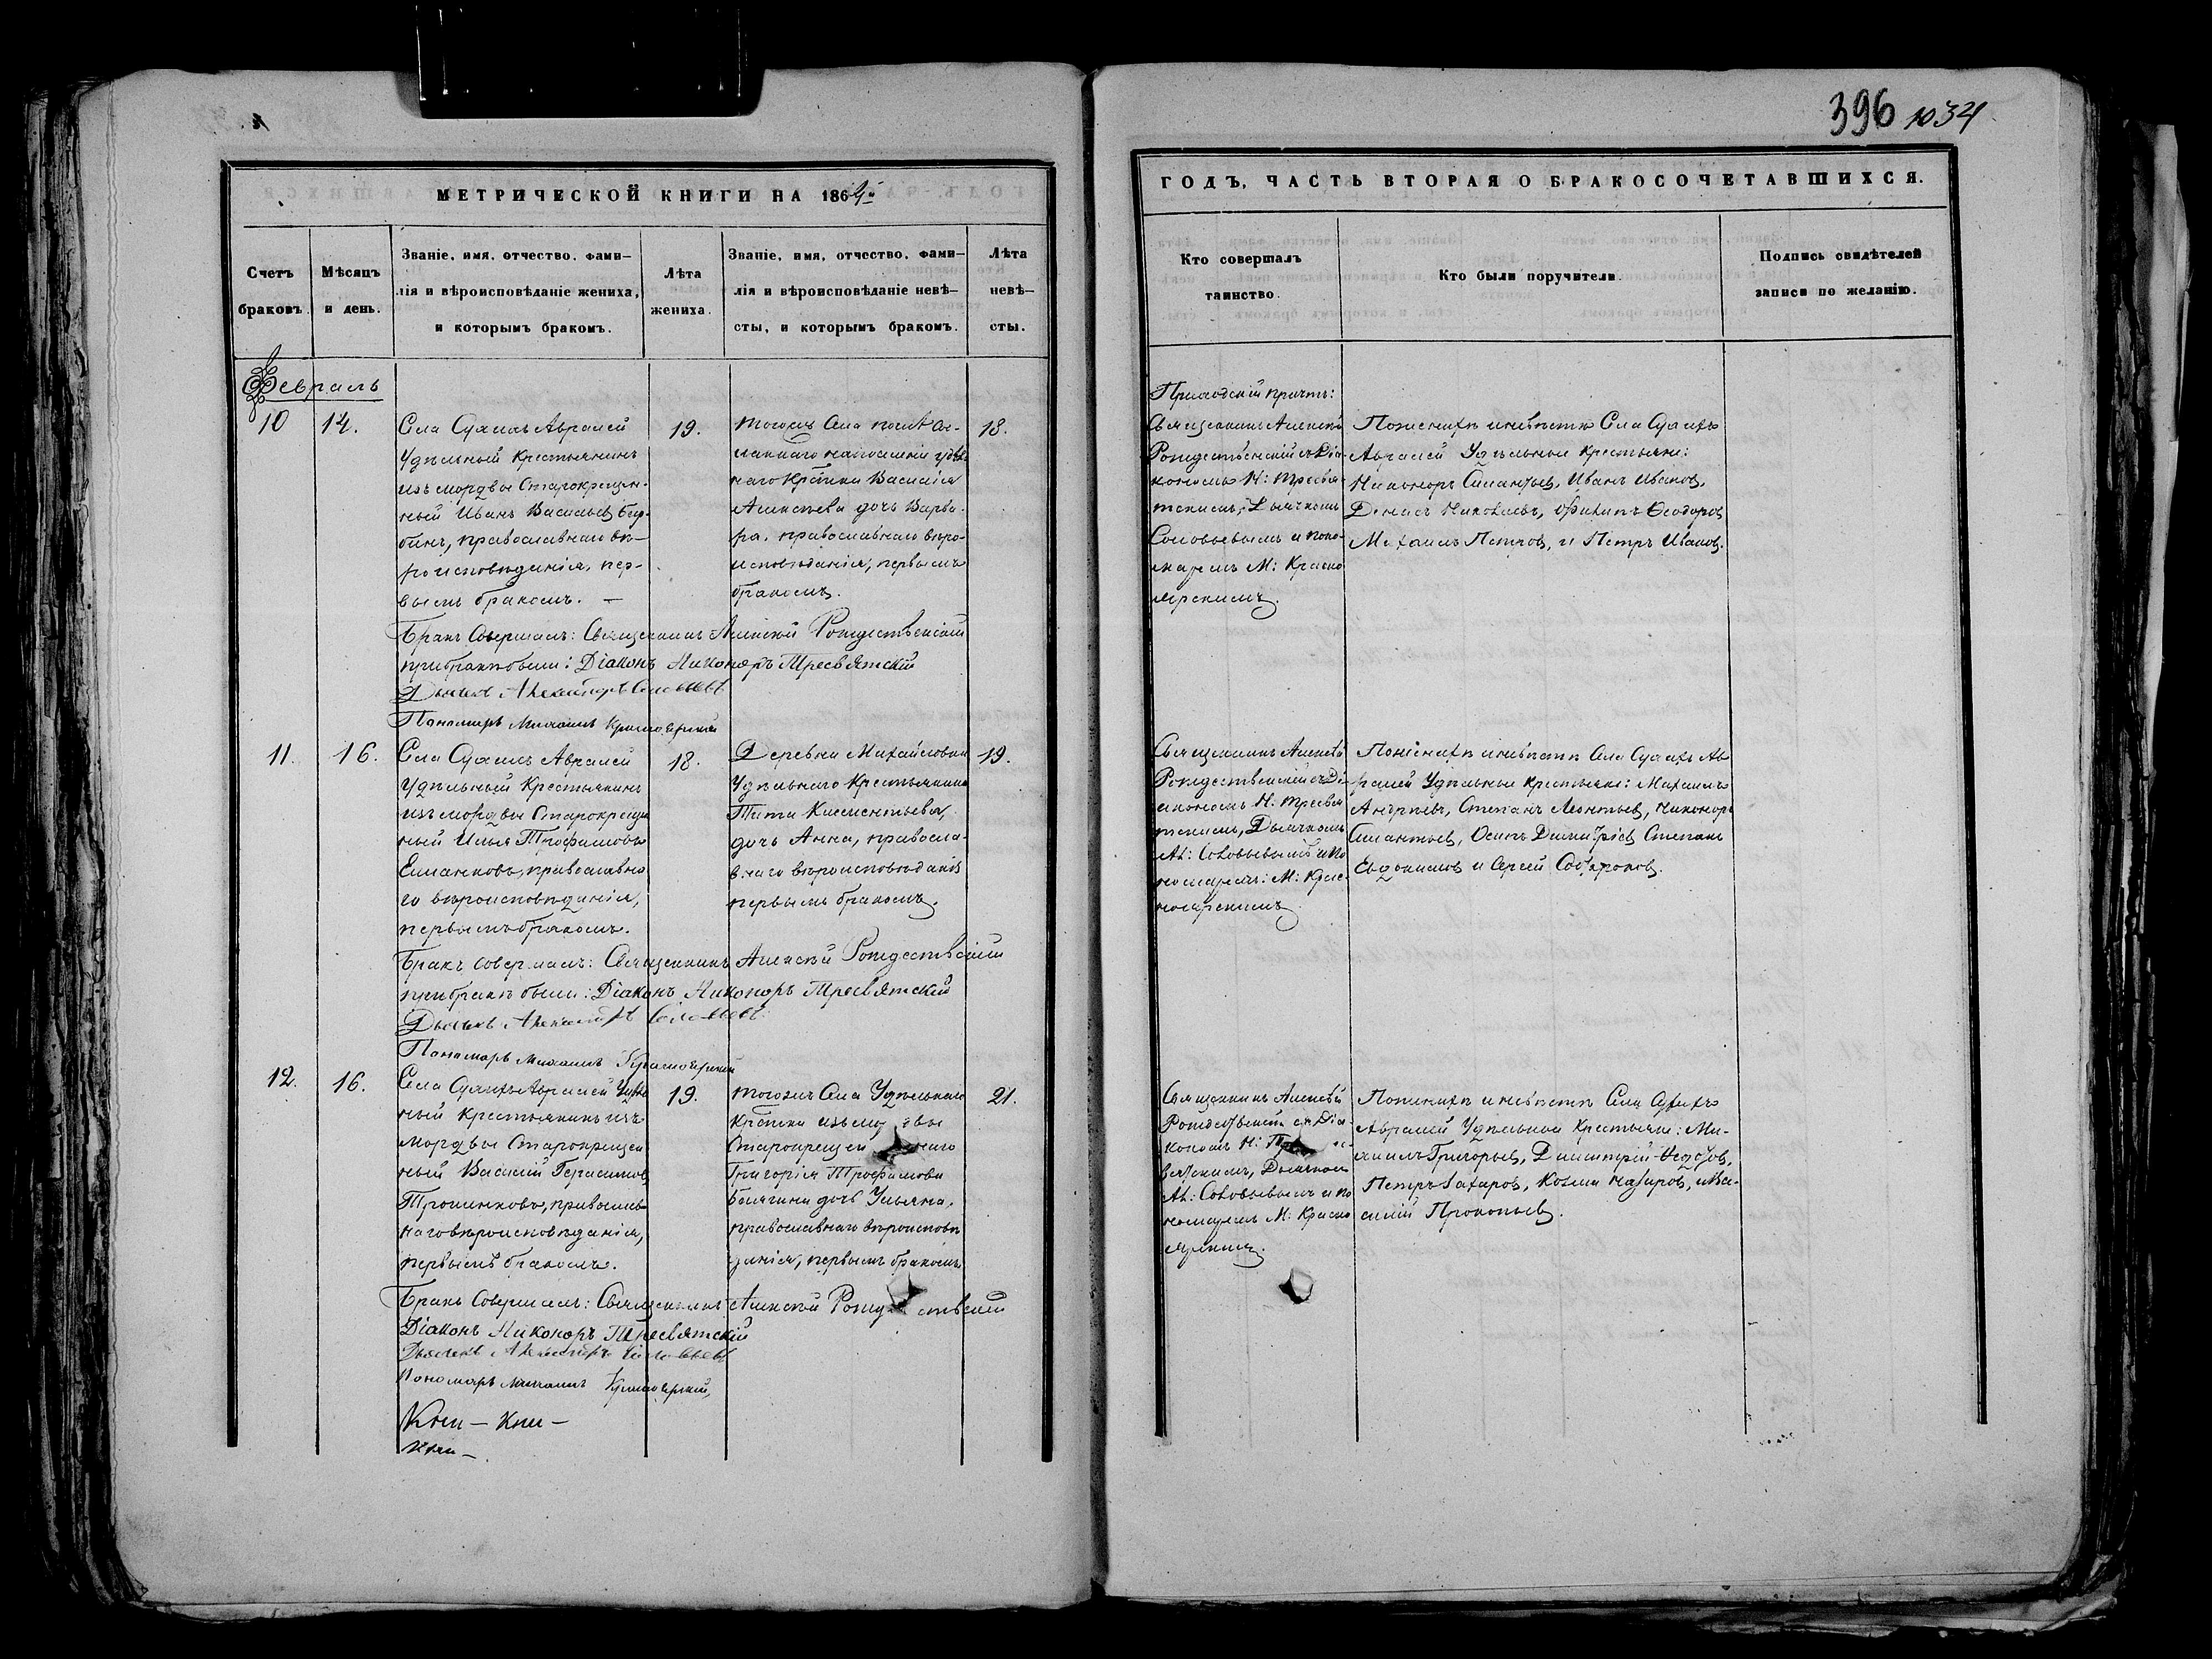 396 1034
МЕТРИЧЕСКОЙ КНИГИ НА 1864й
ГОДЪ, ЧАСТЬ ВТОРАЯ О БРАКОСОЧЕТАВШИХСЯ.
Счетъ браковъ.
Мѣсяцъ и день.
Званіе, имя, отчество, фами–
лія и вѣроисповѣданіе жениха,
и которымъ бракомъ.
Лѣта жениха.
Званіе, имя, отчество, фами–
лія и вѣроисповѣданіе невѣ–
сты, и которымъ бракомъ.
Лѣта невѣ–
сты.
Кто совершалъ
таинство.
Кто были поручители.
Подпись свидѣтелей
записи по желанію.
Февраль
10
14.
Села Авралей
Удѣльный Крестьянинъ
изъ мордвы Старокрещен-
ный Иванъ Васильевъ
православнаго вѣ-
роисповѣданія, пер-
вымъ бракомъ. —
19.
Тогожъ Села
удѣль
наго Крѣстьянина Василія
Алексѣева дочь Варва-
ра, православнаго вѣро-
исповѣданія, первымъ
бракомъ.
18.
Приходскій причтъ:
Священникъ Алексѣй
Рождественскій съ Діа-
кономъ Н: Тресвя-
тскимъ, Дьячкомъ
Соловьевымъ и поно-
маремъ М: Красно
ярскимъ.
По женихѣ и невѣстѣ Села
Авралей Удѣльные Крестьяне:
Никоноръ Силантьевъ, Иванъ Ивановъ,
Денисъ Николаевъ, Филипъ Ѳеодоровъ
Михаилъ Петровъ, и Петръ Ивановъ.
Бракъ Совершалъ: Священникъ Алексѣй Рождественскій
при бракѣ были: Діаконъ Никоноръ Тресвятскій
Дьячекъ Александръ Соловьевъ
Пономарь Михаилъ Красноярскій
11.
16.
Села Авралей
Удѣльный Крестьянинъ
изъ мордвы Старокрещен
ный Илья Трофимовъ
Еманковъ, православна
го вѣроисповѣданія,
первымъ бракомъ.
18.
Деревни Михайловки
Удѣльнаго Крестьянина
Тита Климентьева,
дочь Анна, правосла-
внаго вѣроисповѣданія
первымъ бракомъ.
19.
Священникъ Алексѣй
Рождественскій съ Ді-
акономъ Н: Тресвя
тскимъ, Дьячкомъ
Ал: Соловьевымъ и по
номаремъ: М: Крас-
ноярскимъ.
По женихѣ и невѣстѣ Села Ав
ралей Удѣльные Крестьяне: Михаилъ
Андреевъ, Степанъ Леонтьевъ, Никоноръ
Силантьевъ, Осипъ Димитріевъ Степанъ
Евдокимовъ и Сергей Софроновъ.
Бракъ совершалъ: Священникъ Алексѣй Рождественскій
при бракѣ были: Діаконъ Никоноръ Тресвятскій
Дьячекъ Александръ Соловьевъ
Пономарь Михаилъ Красноярскій
12.
16.
Села Авралей Удѣль
ный Крестьянинъ изъ
мордвы Старокрещен
ный Василій Герасимовъ
Трошенковъ, православ
наго вѣроисповѣданія,
первымъ бракомъ.
19.
Тогожъ Села Удѣльнаго
Крѣстьянина изъ мордвы
Старокрещеннаго
Григорія Трофимова
дочь Ульяна,
православнаго вѣроисповѣ
данія, первымъ бракомъ
21.
Священникъ Алексѣй
Рождественскій съ Діа-
кономъ Н:
вятскимъ, Дьячкомъ
Ал: Соловьевымъ и по
номаремъ М: Красно
ярскимъ.
По женихѣ и невѣстѣ Села
Авралей Удѣльные Крестьяне: Ми-
хаилъ Григорьевъ, Димитрій Ѳедоровъ,
Петръ Захаровъ, Козма Назаровъ, и Ва-
силій Прокопьевъ.
Бракъ Совершалъ: Священникъ Алексѣй Рождественскій
Діаконъ Никоноръ Тресвятскій
Дьячекъ Александръ Соловьевъ
Пономарь Михаилъ Красноярскій,